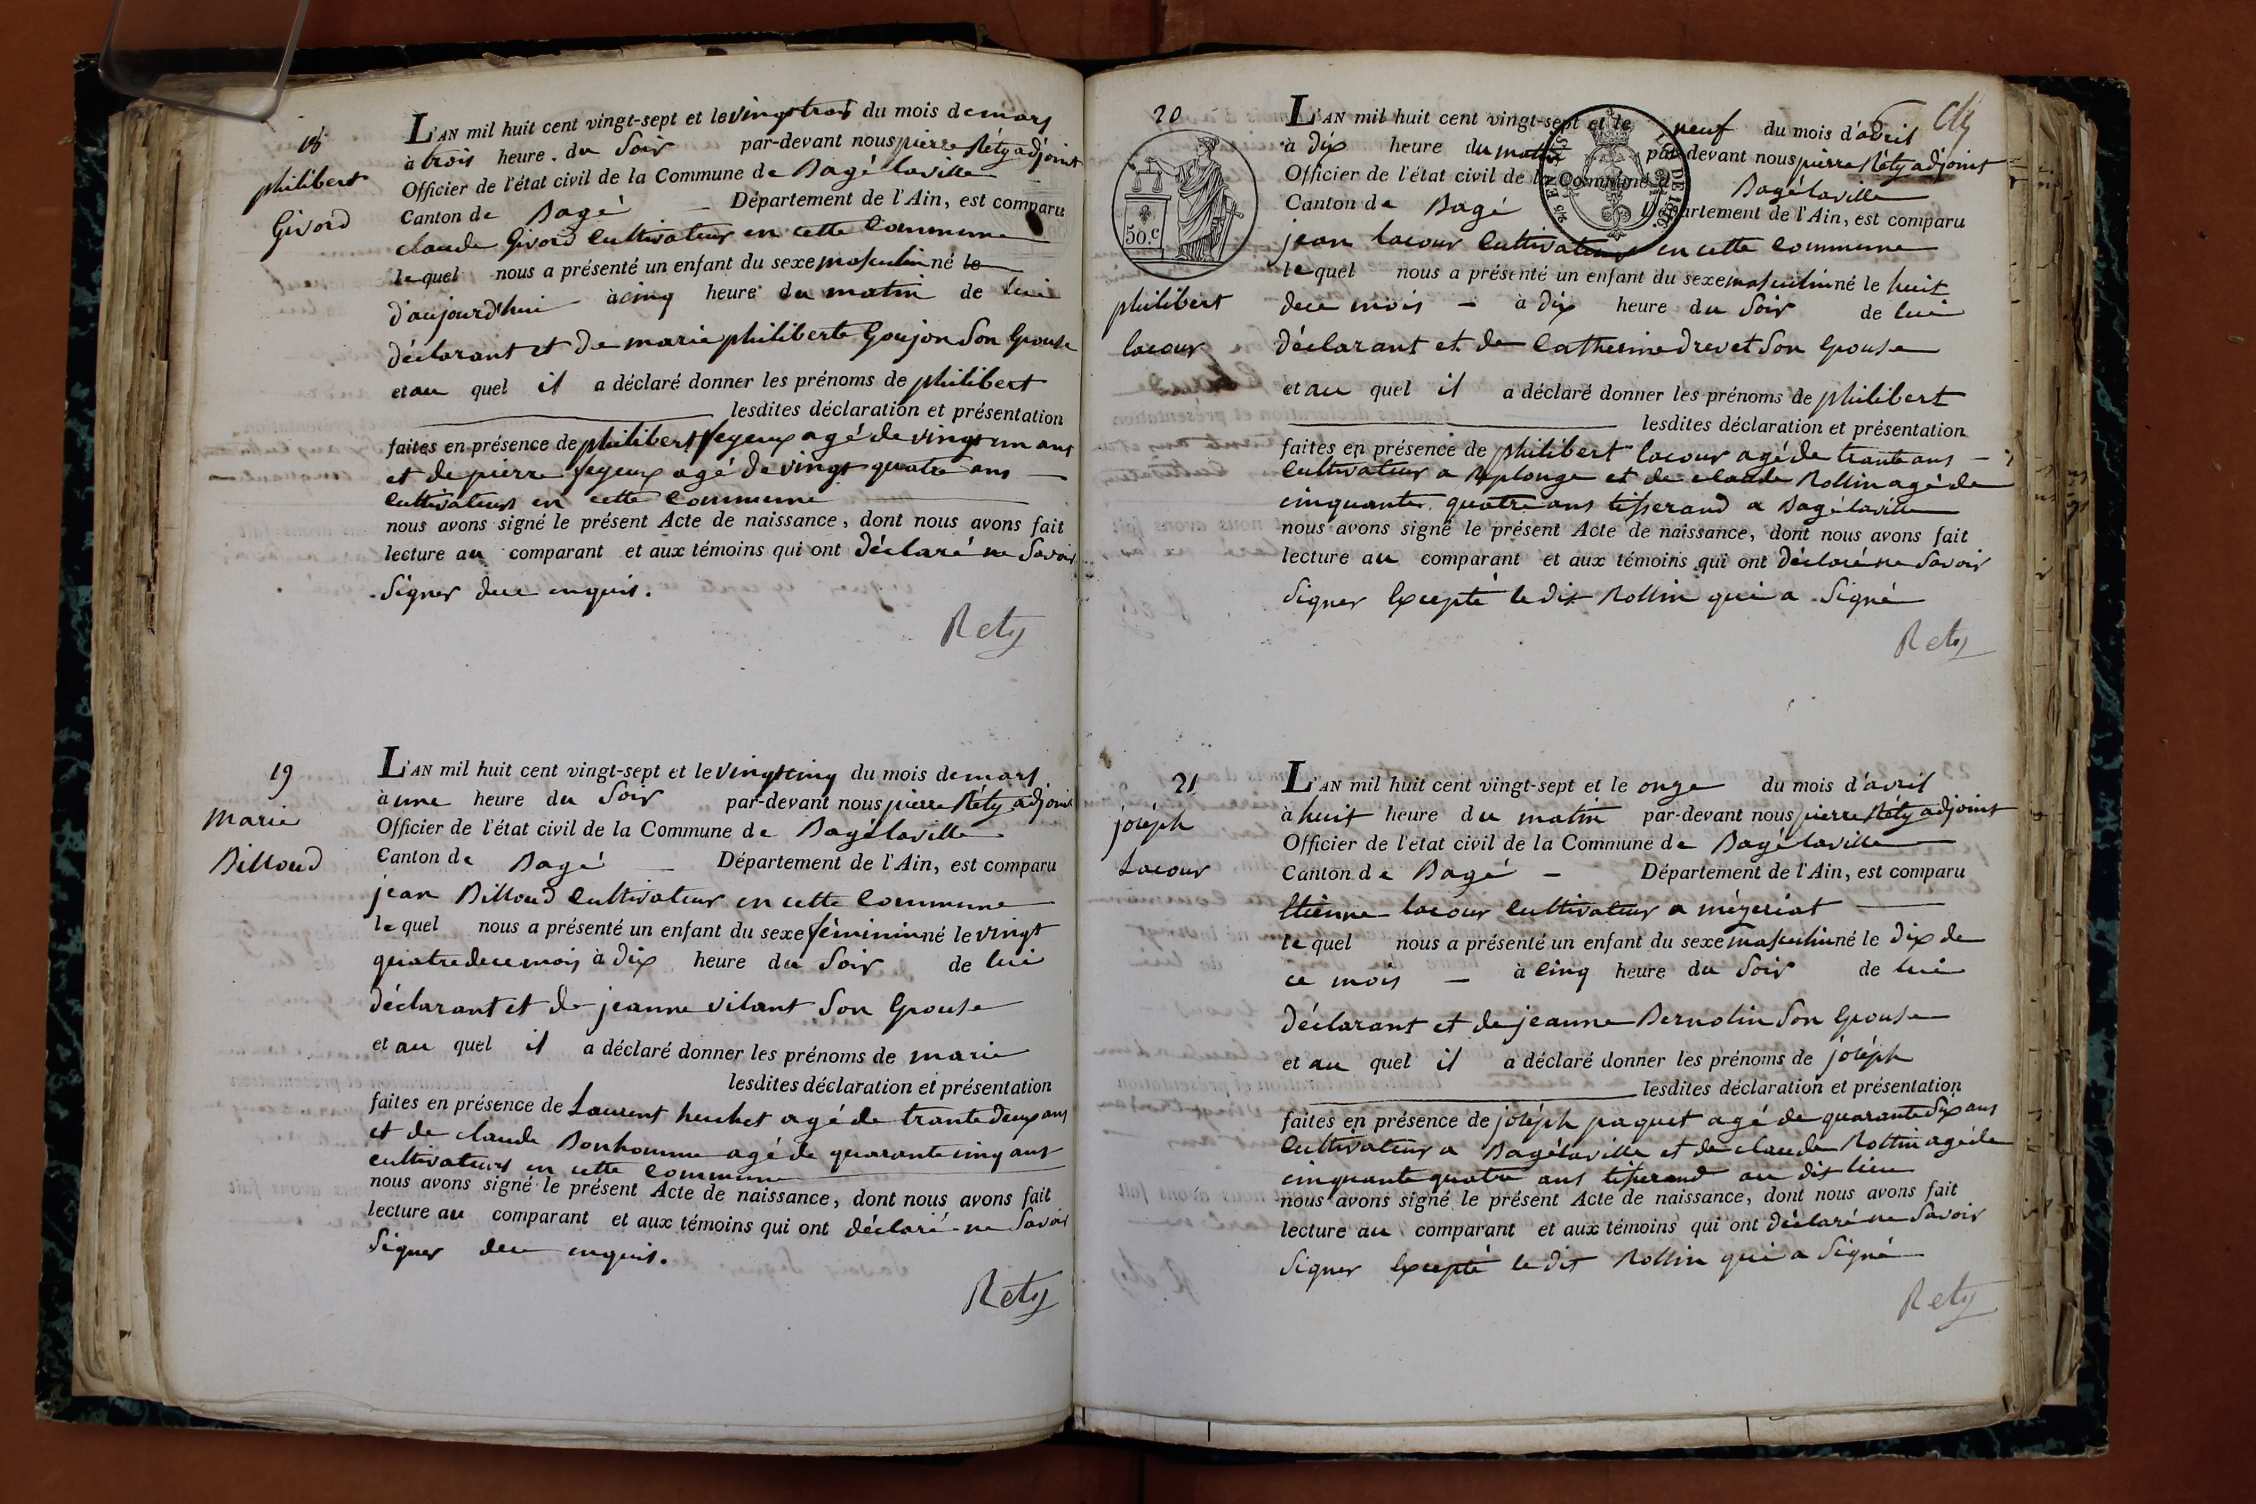 18
philibert
Givord
L'AN mil huit cent vingt-sept et le vingt trois du mois de mars
à trois heure du Soir par-devant nous pierre Réty adjoint
Officier de l'état civil de la Commune de Bagé laville
Canton de Bagé Département de l'Ain, est comparu
claude Givord Cultivateur en cette Commune
lequel nous a présenté un enfant du sexe masculin né le
d'aujourd'hui à cinq heure du matin de lui
déclarant et de marie philiberte Goujon Son Epouse
et au quel il a déclaré donner les prénoms de philibert
lesdites déclaration et présentation
faites en présence de philibert feyeux agé de vingt un ans
et de pierre feyeux agé de vingt quatre ans
Cultivateurs en cette Commune
nous avons signé le présent Acte de naissance, dont nous avons fait
lecture au comparant et aux témoins qui ont déclaré ne Savoir
Signer de ce enquis.
Rety
19
Marie
Billoud
L'AN mil huit cent vingt-sept et le vingt cinq du mois de mars
à une heure du Soir par-devant nous pierre Réty adjoint
Officier de l'état civil de la Commune de Bagé laville
Canton de Bagé Département de l'Ain, est comparu
jean Billoud Cultivateur en cette Commune
lequel nous a présenté un enfant du sexe féminin né le vingt
quatre de ce mois à dix heure du Soir de lui
déclarant et de jeanne vilant Son Epouse
et au quel il a déclaré donner les prénoms de marie
lesdites déclaration et présentation
faites en présence de Laurent agé de trante deux ans
et de claude Bonhomme agé de quarante cinq ans
cultivateurs en cette Commune
nous avons signé le présent Acte de naissance, dont nous avons fait
lecture au comparant et aux témoins qui ont déclaré ne Savoir
Signer de ce enquis.
Rety
20
50.c
philibert
lacour
L'AN mil huit cent vingt-sept et le neuf du mois d'avril
à dix heure du matin par-devant nous pierre Réty adjoint
Officier de l'état civil de la Commune de Bagé laville
Canton de Bagé Département de l'Ain, est comparu
DE 1816.
jean lacour Cultivateur en cette Commune
lequel nous a présenté un enfant du sexe masculin né le huit
de ce mois à dix heure du Soir de lui
déclarant et de Catherine drevet Son Epouse
et au quel il a déclaré donner les prénoms de philibert
lesdites déclaration et présentation
faites en présence de philibert lacour agé de trante ans
Cultivateur a Replonge et de claude Rollin agé de
cinquante quatre ans tisserand a Bagé laville
nous avons signé le présent Acte de naissance, dont nous avons fait
lecture au comparant et aux témoins qui ont déclaré ne Savoir
Signer Excepté le dit Rollin qui a Signé
Rety
21
joséph
Lacour
L'AN mil huit cent vingt-sept et le onze du mois d'avril
à huit heure du matin par-devant nous pierre Réty adjoint
Officier de l'état civil de la Commune de Bagé laville
Canton de Bagé Département de l'Ain, est comparu
Etienne lacour Cultivateur a mézeriat
lequel nous a présenté un enfant du sexe masculin né le dix de
ce mois à Cinq heure du Soir de lui
déclarant et de jeanne Bernolin Son Epouse
et au quel il a déclaré donner les prénoms de joséph
lesdites déclaration et présentation
faites en présence de joséph paquet agé de quarante Six ans
Cultivateur a Bagé laville et de claude Rollin agé de
cinquante quatre ans tisserand au dit lieu
nous avons signé le présent Acte de naissance, dont nous avons fait
lecture au comparant et aux témoins qui ont déclaré ne Savoir
Signer Excepté le dit Rollin qui a Signé
Rety